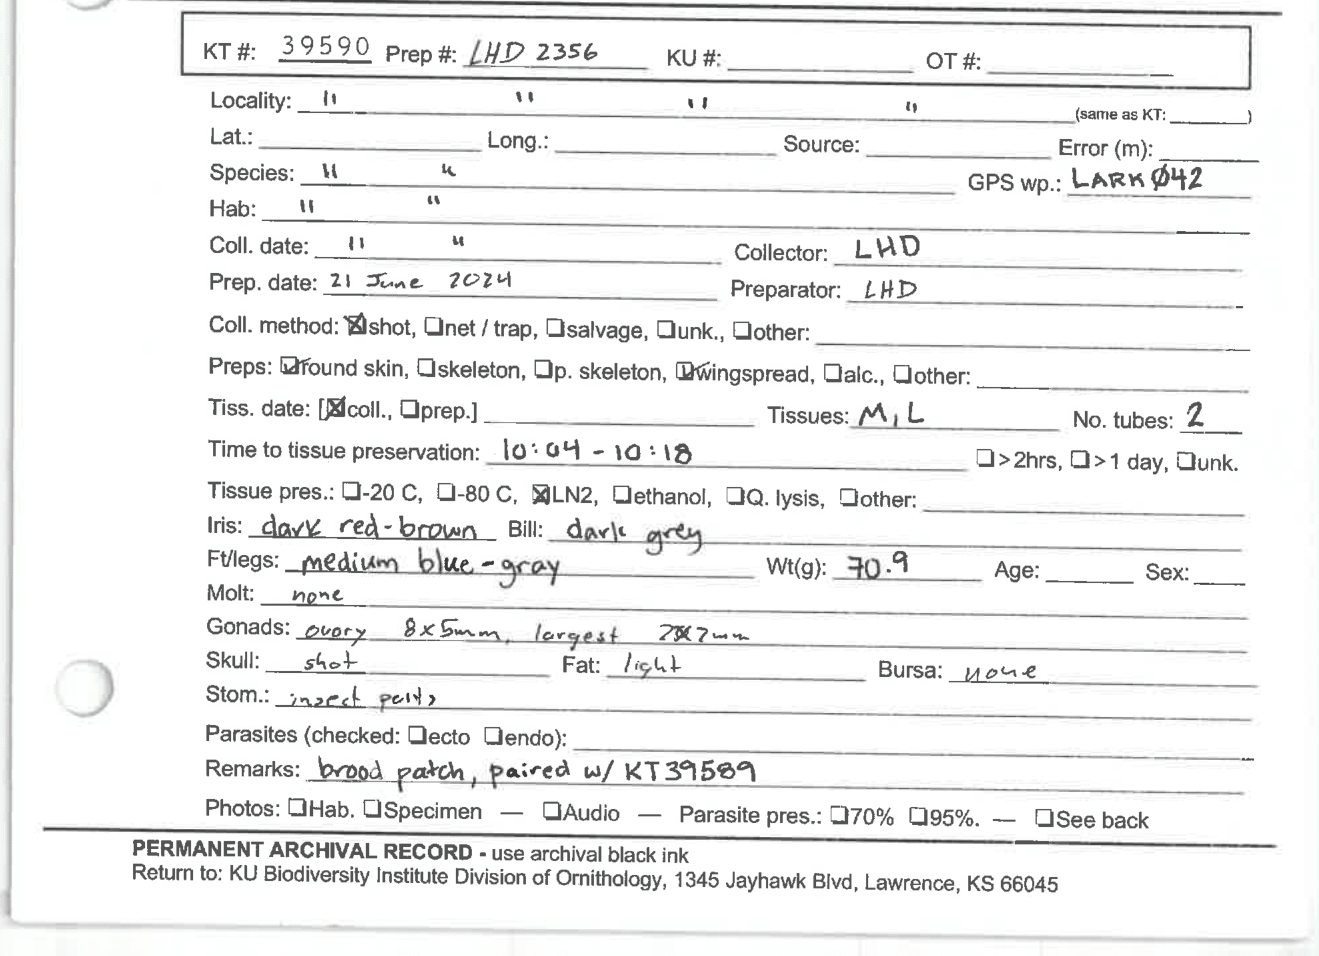 KT #: 39590 Prep #: LHD 2356 KU #: OT #:
Locality: " " " " (same as KT: )
Lat.: Long.: Source: Error (m):
Species: " " GPS wp.: LARKØ42
Hab: " "
Coll. date: " " Collector: LHD
Prep. date: 21 June 2024 Preparator: LHD
Coll. method: ☒shot, ❑net / trap, ❑salvage, ❑unk., ❑other:
Preps: ☑round skin, ❑skeleton, ❑p. skeleton, ☑wingspread, ❑alc., ❑other:
Tiss. date: [☒coll., ❑prep.] Tissues: M, L No. tubes: 2
Time to tissue preservation: 10:04 - 10:18 ❑>2hrs, ❑>1 day, ❑unk.
Tissue pres.: ❑-20 C, ❑-80 C, ☒LN2, ❑ethanol, ❑Q. lysis, ❑other:
Iris: dark red-brown Bill: dark grey
Ft/legs: medium blue-gray Wt(g): 70.9 Age: Sex:
Molt: none
Gonads: ovary 8x5mm, largest 2x2mm
Skull: shot Fat: light Bursa: none
Stom.: insect parts
Parasites (checked: ❑ecto ❑endo):
Remarks: brood patch, paired w/ KT39589
Photos: ❑Hab. ❑Specimen — ❑Audio — Parasite pres.: ❑70% ❑95%. — ❑See back
PERMANENT ARCHIVAL RECORD - use archival black ink
Return to: KU Biodiversity Institute Division of Ornithology, 1345 Jayhawk Blvd, Lawrence, KS 66045